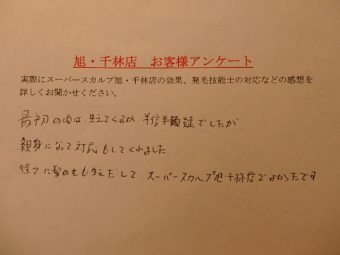 旭・千林店　お客様アンケート
実際にスーパースカルプ旭・千林店の効果、発毛技能士の対応などの感想を
詳しくお聞かせください。
最初の内は、生えてくるか半信半疑でしたが
親身になって対応もしてくれました
徐々に髪の毛も生えだして、スーパースカルプ旭千林店でよかったです